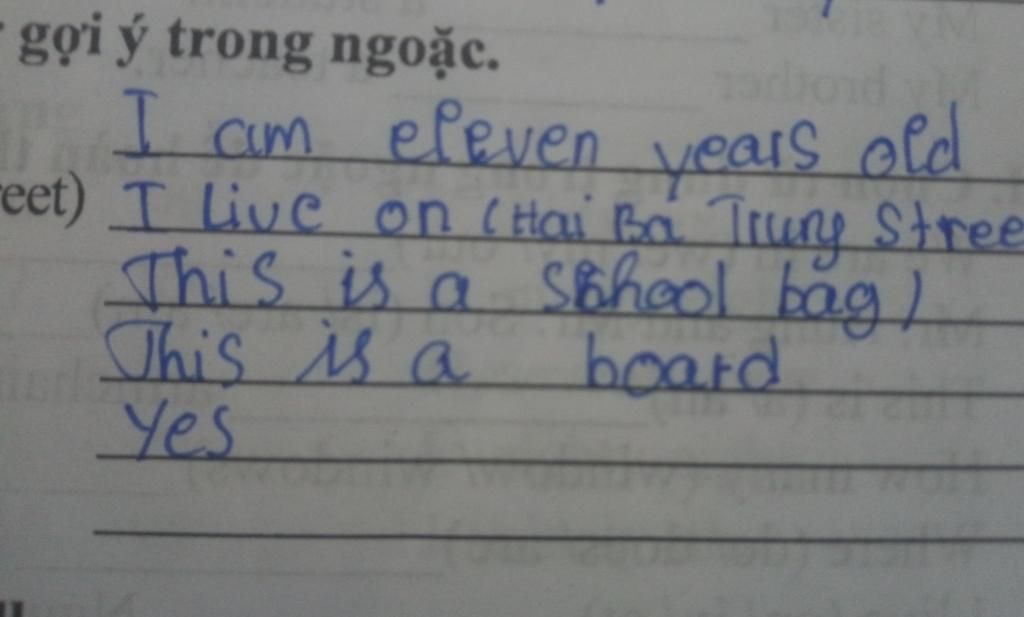 gợi ý trong ngoặc.
I am eleven years old
eet) I Live on (Hai Bà Trưng Stree
This is a school bag)
This is a board
Yes